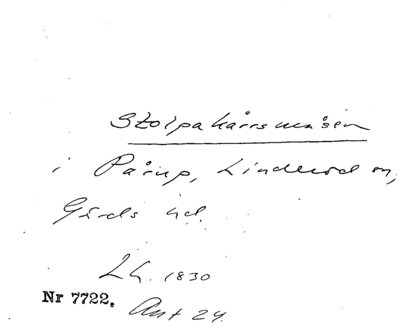 Stolpakärrsmåsen
i Pårup, Linderöd sn,
Gärds hd.
Lh. 1830
Nr 7722. Ant 24.